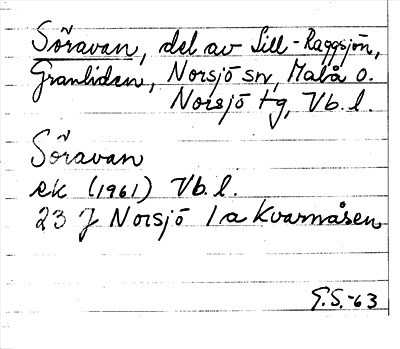 Söravan, del av Sill-Raggsjön,
Granliden, Norsjö sn, Malå o.
Norsjö tg, Vb. l.
Söravan
ek (1961) Vb. l.
23 J Norsjö 1a Kvarnåsen
G.S.-63